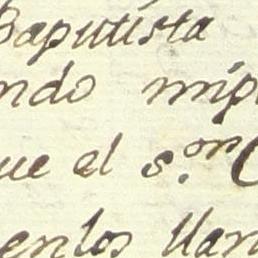 Baptista
ndo mip
ue el s.or C
enlos llan